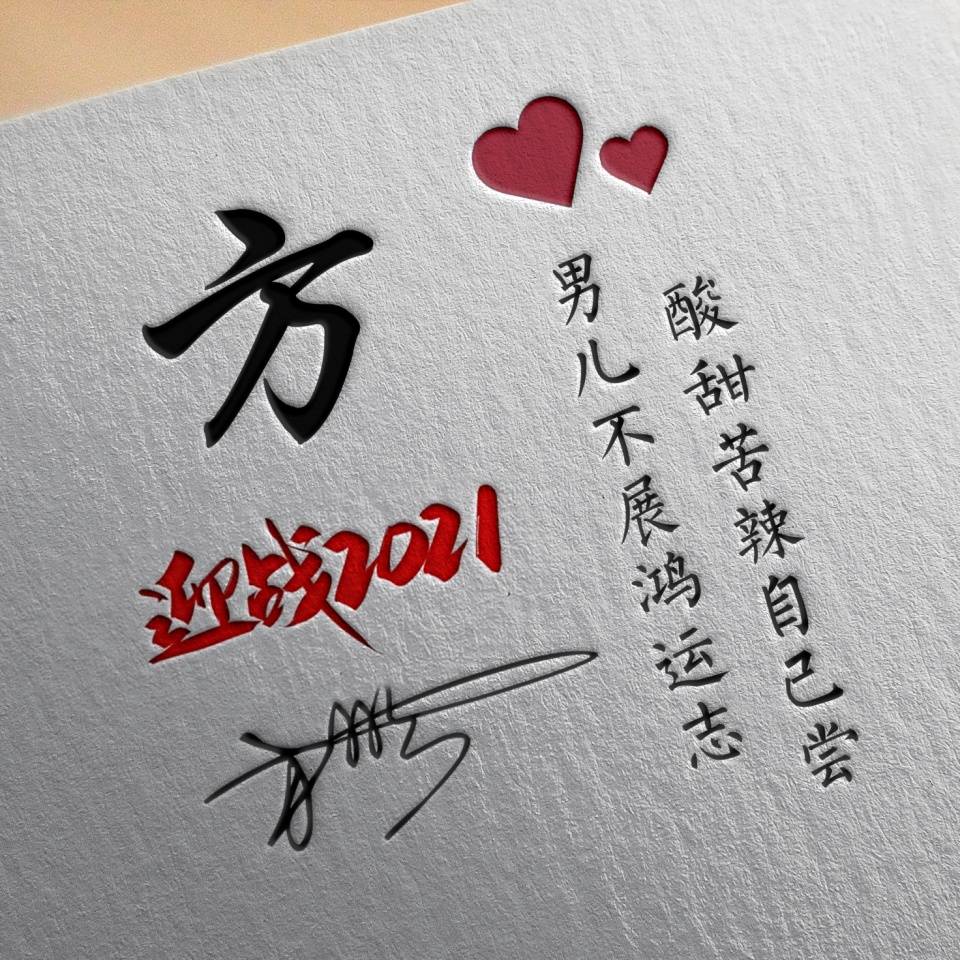 方
迎战2021
男儿不展鸿运志
酸甜苦辣自己尝